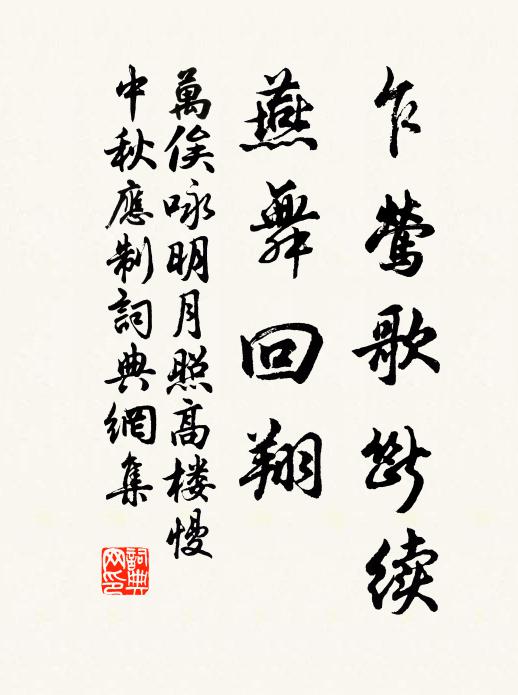 乍鶯歌斷续
燕舞回翔
萬俟咏明月照高楼慢
中秋應制詞典網集
詞典网印